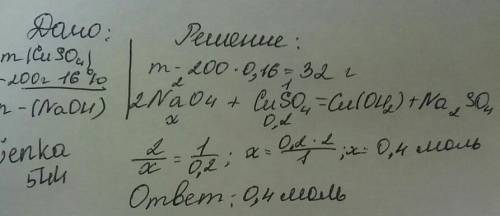 Дано:
m (CuSO₄)
-200г 16%
n - (NaOH)
Решение:
m - 200 · 0,16 = 32 г
2 1
2NaO4 + CuSO₄ = Cu(OH₂) + Na₂SO₄
x 0,2
2/x = 1/0,2 ; x = 0,2 · 2/1 ; x = 0,4 моль
Ответ: 0,4 моль
544